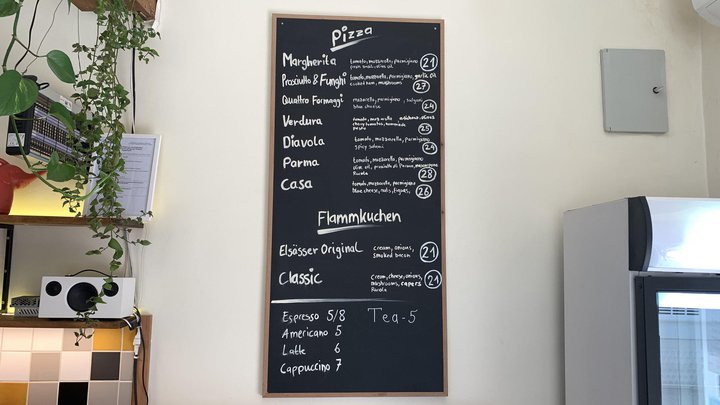 Pizza
Margherita tomato, mozzarella, parmigiano 21
olive oil
Prosciutto & Funghi tomato, mozzarella, parmigiano, garlic oil
cooked ham, mushrooms 27
Quattro Formaggi mozzarella, parmigiano, 24
blue cheese
Verdura tomato, mozzarella
cherry tomatoes, homemade
pesto 25
Diavola tomato, mozzarella, parmigiano
spicy salami 24
Parma tomato, mozzarella, parmigiano
olive oil, prosciutto di Parma, mascarpone
Rucola 28
Casa tomato, mozzarella, parmigiano
blue cheese, nuts, 26
Flammkuchen
Elsässer Original cream, onions,
smoked bacon 21
Classic cream, cheese, onions,
mushrooms, capers 21
Rucola
Espresso 5/8 Tea-5
Americano 5
Latte 6
Cappuccino 7